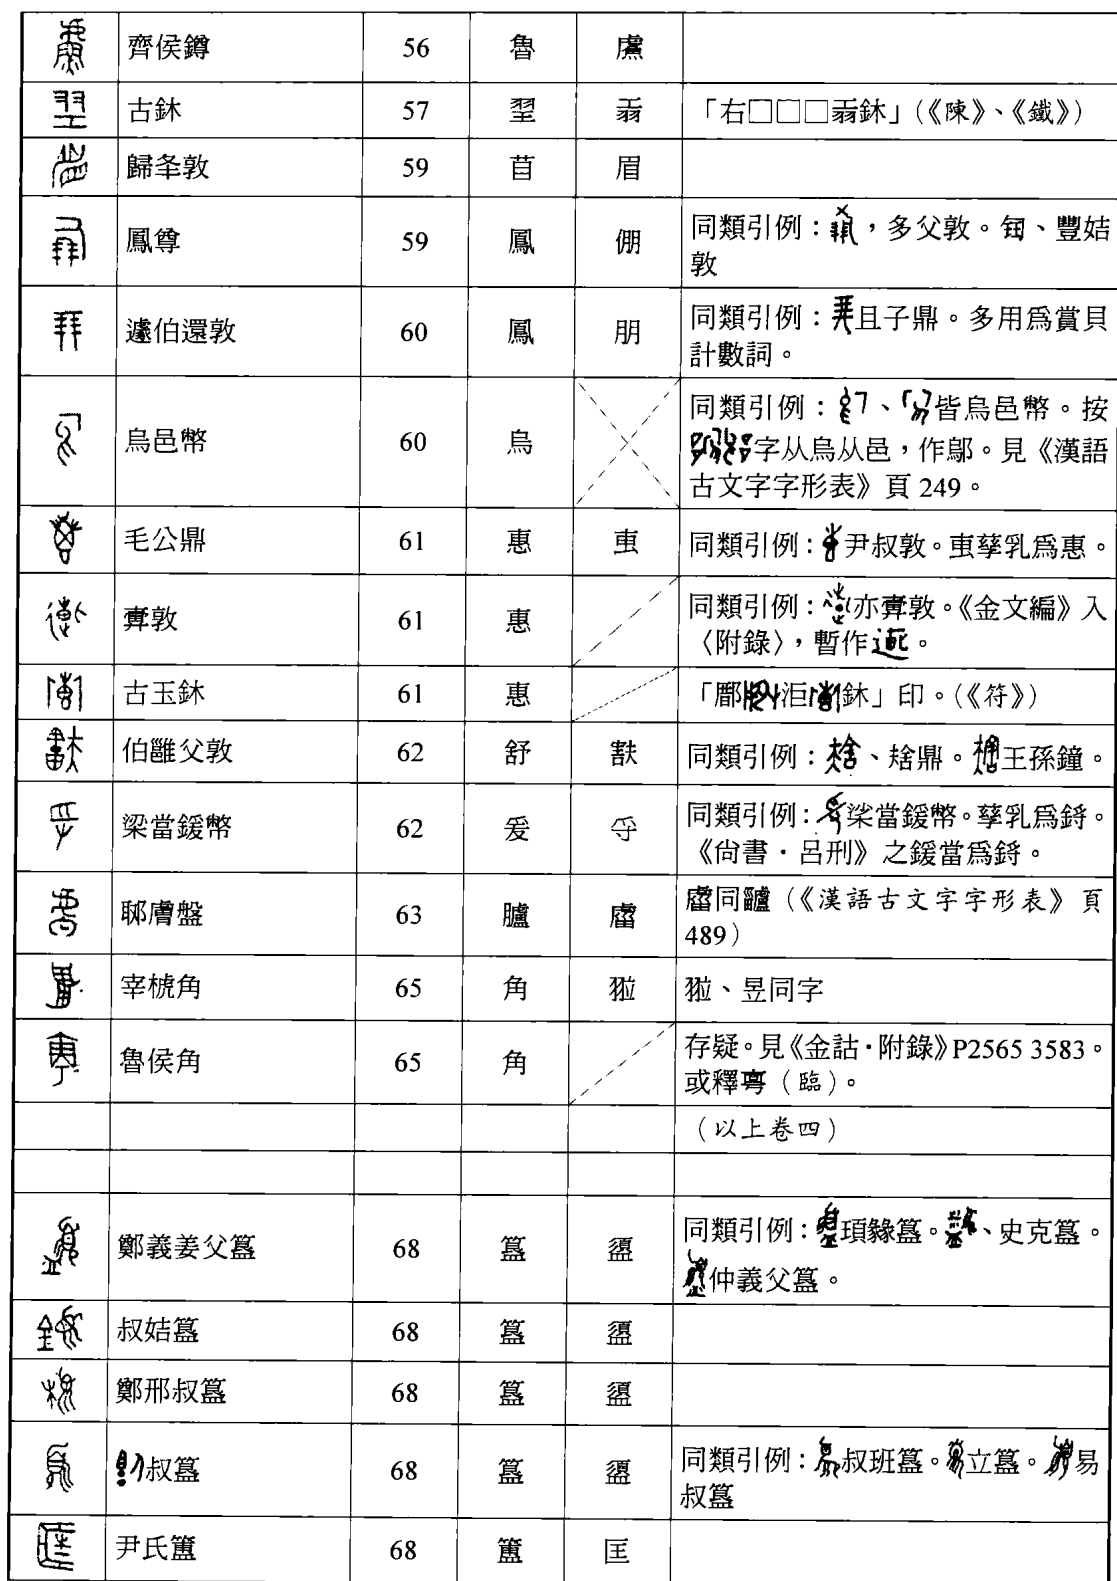 齊侯鐏 56 魯 鷹
古鉨 57 翌 𦐇 「右□□□𦐇鉨」(《陳》、《鐵》)
歸夆敦 59 苜 眉
鳳尊 59 鳳 倗 同類引例:,多父敦。、豐姞
敦
遽伯還敦 60 鳳 朋 同類引例:且子鼎。多用爲賞貝
計數詞。
烏邑幣 60 烏 同類引例:、皆烏邑幣。按
字从烏从邑,作鄔。見《漢語
古文字字形表》頁 249。
毛公鼎 61 惠 叀 同類引例:尹叔敦。叀孳乳爲惠。
敦 61 惠 同類引例:亦敦。《金文編》入
〈附錄〉,暫作。
古玉鉨 61 惠 「洰鉨」印。(《符》)
伯雝父敦 62 舒 㝬 同類引例:、鼎。王孫鐘。
梁當鍰幣 62 爰 寽 同類引例:梁當鍰幣。孳乳爲鋝。
《尙書·呂刑》之鍰當爲鋝。
膚盤 63 臚 𧇄同(《漢語古文字字形表》頁
489)
宰椃角 65 角 、昱同字
魯侯角 65 角 存疑。見《金詁·附錄》P2565 3583。
或釋(臨)。
(以上卷四)
鄭義姜父簋 68 簋 盨 同類引例:頊簋。、史克簋。
仲義父簋。
叔姞簋 68 簋 盨
鄭邢叔簋 68 簋 盨
叔簋 68 簋 盨 同類引例:叔班簋。立簋。易
叔簋
尹氏簠 68 簠 匡